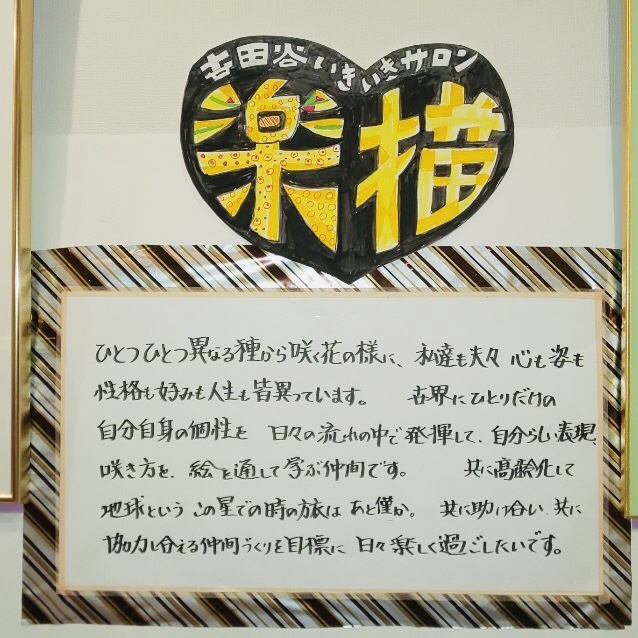 吉田谷いきいきサロン
楽描
ひとつひとつ異なる種から咲く花の様に、私達も夫々 心も姿も
性格も好みも人生も皆異っています。 世界にひとりだけの
自分自身の個性を 日々の流れの中で発揮して、自分らしい表現、
咲き方を、絵を通して学ぶ仲間です。 共に高齢化して
地球という この星での時の旅は あと僅か。 共に助け合い、共に
協力し合える仲間づくりを目標に 日々楽しく過ごしたいです。